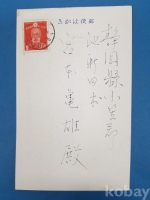 きかは便郵
静岡縣小笠郡
池新田村
宮本亀雄殿
kobay